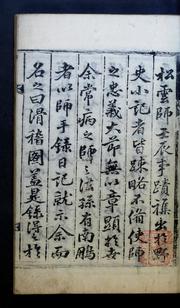 松雲師壬辰事蹟雜出於野
史小記者皆踈略不備使師
之忠義大節無以章顯於世
余常病之師之法孫有南鵬
者以師手錄日記就示余而
名之曰滑稽圖盖是錄得於